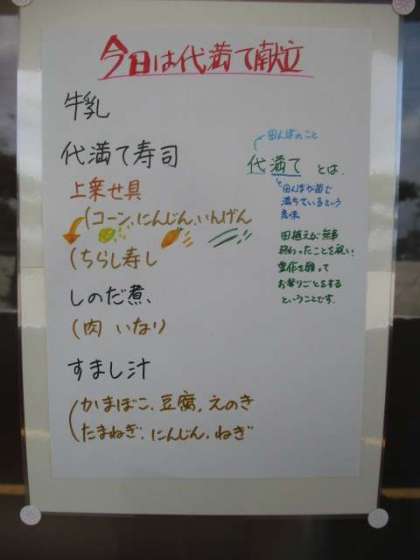 今日は代満て献立
牛乳
代満て寿司
上乗せ具
(コーン、にんじん、いんげん
(ちらし寿し
しのだ煮、
(肉 いなり)
すまし汁
(かまぼこ、豆腐、えのき
たまねぎ、にんじん、ねぎ
田んぼのこと
代満て とは、
田んぼが苗で
満ちているという
意味
田植えが無事
終わったことを祝い、
豊作を願って
お祭りごとをする
ということです。